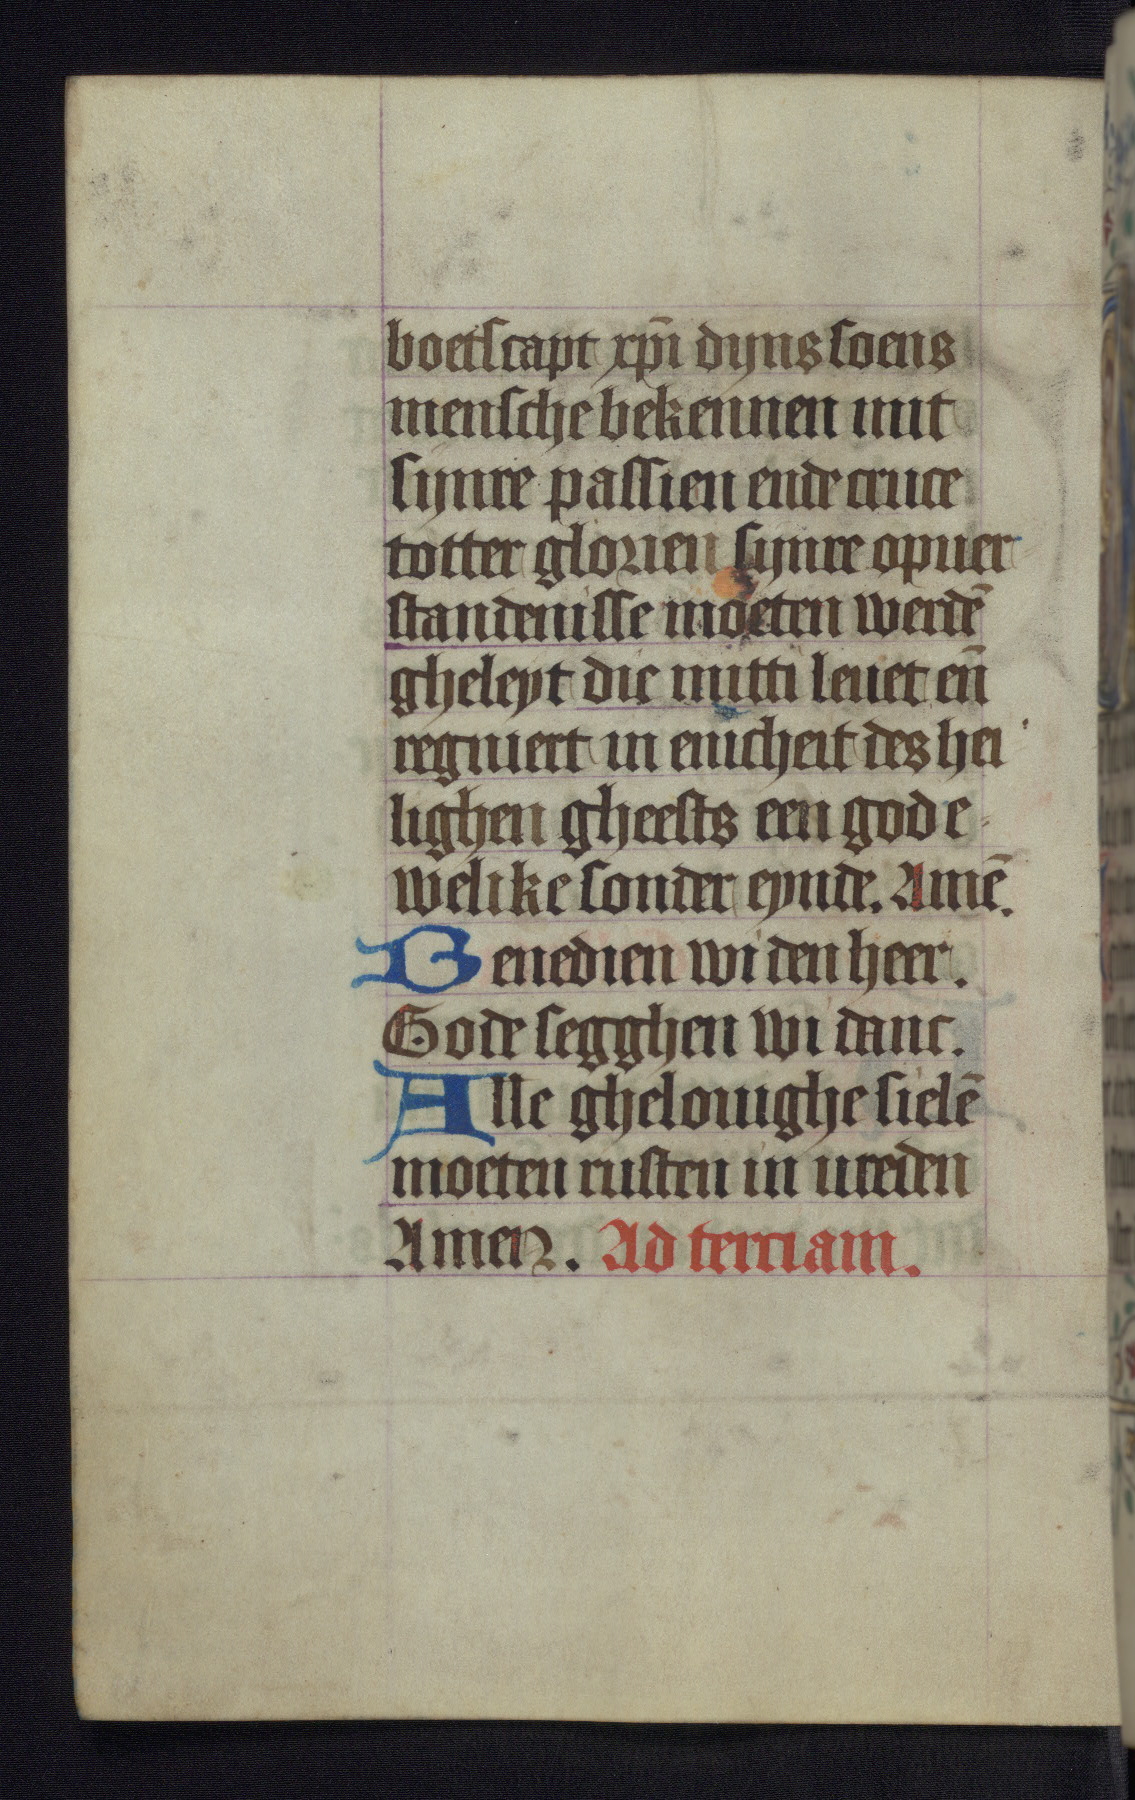 boetscapt xp̄i dyns soens
mensche bekennen mit
sijnre passien ende cruce
totter glorien sijnre opuer
standenisse moeten werdē
gheleyt die mitti leuet en̄
regniert in enicheit des hei
lighen gheests een god e
welike sonder eynde. Amē.
Benedien wi den heer.
Gode segghen wi danc.
Alle ghelouighe sielē
moeten rusten in ureden
Amen. Ad terciam.